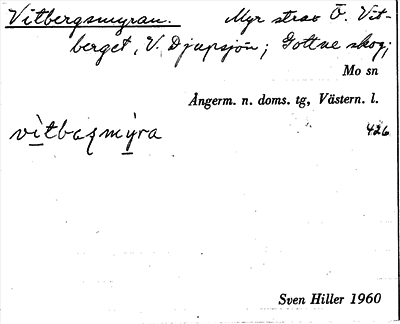 Vitbergsmyran. Myr strax Ö. Vit-
berget, V. Djupsjön; Gottne skog;
Mo sn
Ångerm. n. doms. tg, Västern. l.
vìtbaʂmỳra 426
Sven Hiller 1960